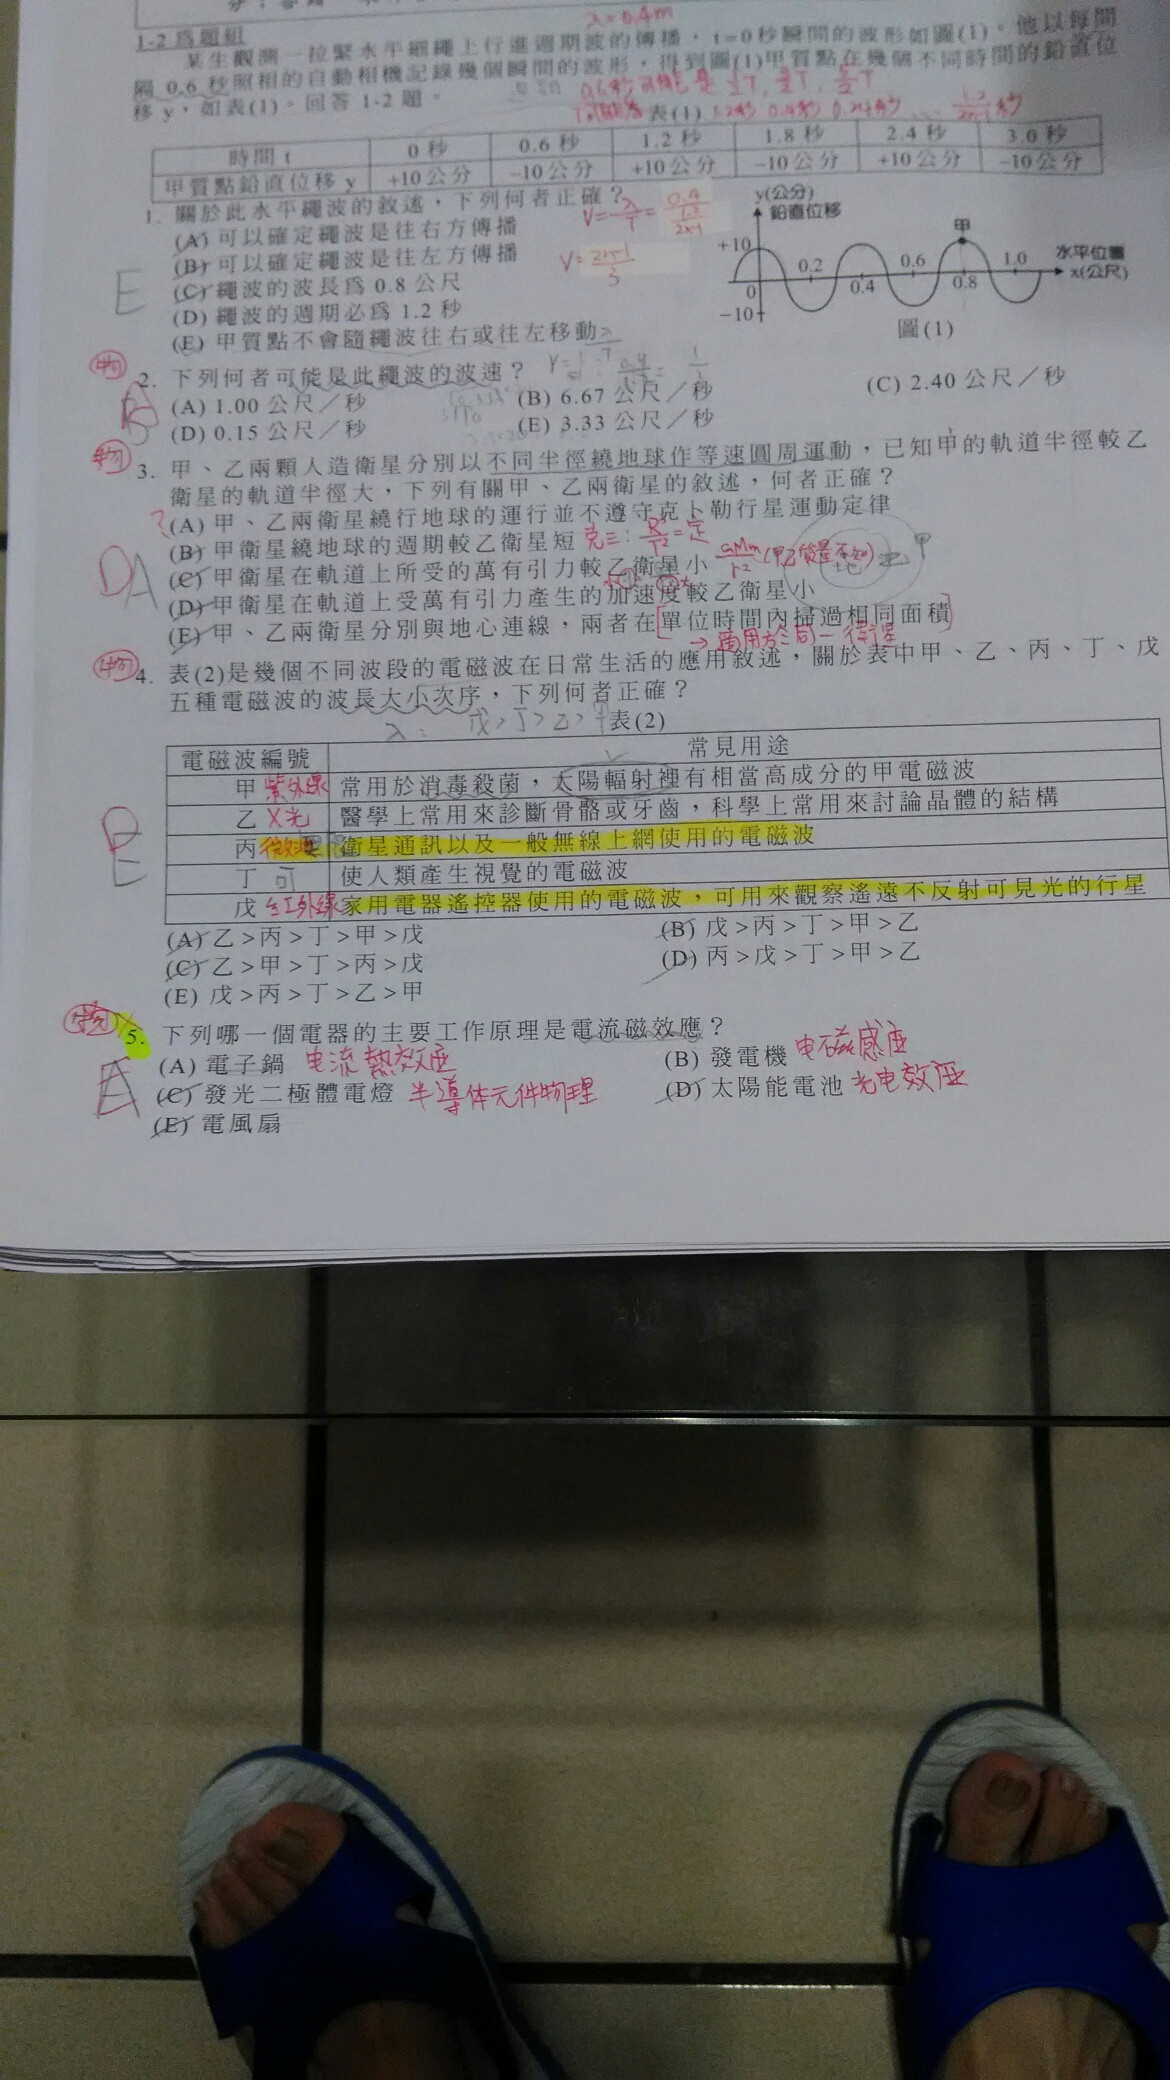 λ=0.4m
1-2為題組
某生觀測一拉緊水平細繩上行進週期波的傳播,t=0秒瞬間的波形如圖(1)。他以每間
隔 0.6 秒照相的自動相機記錄幾個瞬間的波形,得到圖(1)甲質點在幾個不同時間的鉛直位
移 y,如表(1)。回答 1-2 題。
0.6秒可能是
表(1)
時間 t 0 秒 0.6 秒 1.2 秒 1.8 秒 2.4 秒 3.0 秒
甲質點鉛直位移 y +10公分 -10公分 +10公分 -10公分 +10公分 -10公分
1. 關於此水平繩波的敘述,下列何者正確?
(A) 可以確定繩波是往右方傳播
(B) 可以確定繩波是往左方傳播
(C) 繩波的波長為 0.8 公尺
(D) 繩波的週期必為 1.2 秒
(E) 甲質點不會隨繩波往右或往左移動
E
y(公分)
鉛直位移
甲
+10
0.2
0.6
1.0
水平位置
x(公尺)
0
0.4
0.8
-10
圖(1)
物
2. 下列何者可能是此繩波的波速?
(A) 1.00 公尺/秒
(B) 6.67 公尺/秒
(C) 2.40 公尺/秒
(D) 0.15 公尺/秒
(E) 3.33 公尺/秒
物
3. 甲、乙兩顆人造衛星分別以不同半徑繞地球作等速圓周運動,已知甲的軌道半徑較乙
衛星的軌道半徑大,下列有關甲、乙兩衛星的敘述,何者正確?
?
(A) 甲、乙兩衛星繞行地球的運行並不遵守克卜勒行星運動定律
(B) 甲衛星繞地球的週期較乙衛星短 克三: R³/T²=定
(C) 甲衛星在軌道上所受的萬有引力較乙衛星小
(D) 甲衛星在軌道上受萬有引力產生的加速度較乙衛星小
(E) 甲、乙兩衛星分別與地心連線,兩者在單位時間內掃過相同面積
→適用於同一衛星
DA
地 乙 甲
物
4. 表(2)是幾個不同波段的電磁波在日常生活的應用敘述,關於表中甲、乙、丙、丁、戊
五種電磁波的波長大小次序,下列何者正確?
λ: 戊>丁>乙>甲
表(2)
電磁波編號 常見用途
甲 紫外線 常用於消毒殺菌,太陽輻射裡有相當高成分的甲電磁波
乙 X光 醫學上常用來診斷骨骼或牙齒,科學上常用來討論晶體的結構
丙 微波 衛星通訊以及一般無線上網使用的電磁波
丁 可 使人類產生視覺的電磁波
戊 紅外線 家用電器遙控器使用的電磁波,可用來觀察遙遠不反射可見光的行星
(A) 乙>丙>丁>甲>戊
(B) 戊>丙>丁>甲>乙
(C) 乙>甲>丁>丙>戊
(D) 丙>戊>丁>甲>乙
(E) 戊>丙>丁>乙>甲
E
5. 下列哪一個電器的主要工作原理是電流磁效應?
(A) 電子鍋 电流熱效应
(B) 發電機 电磁感应
(C) 發光二極體電燈 半導体元件物理
(D) 太陽能電池 光电效应
(E) 電風扇